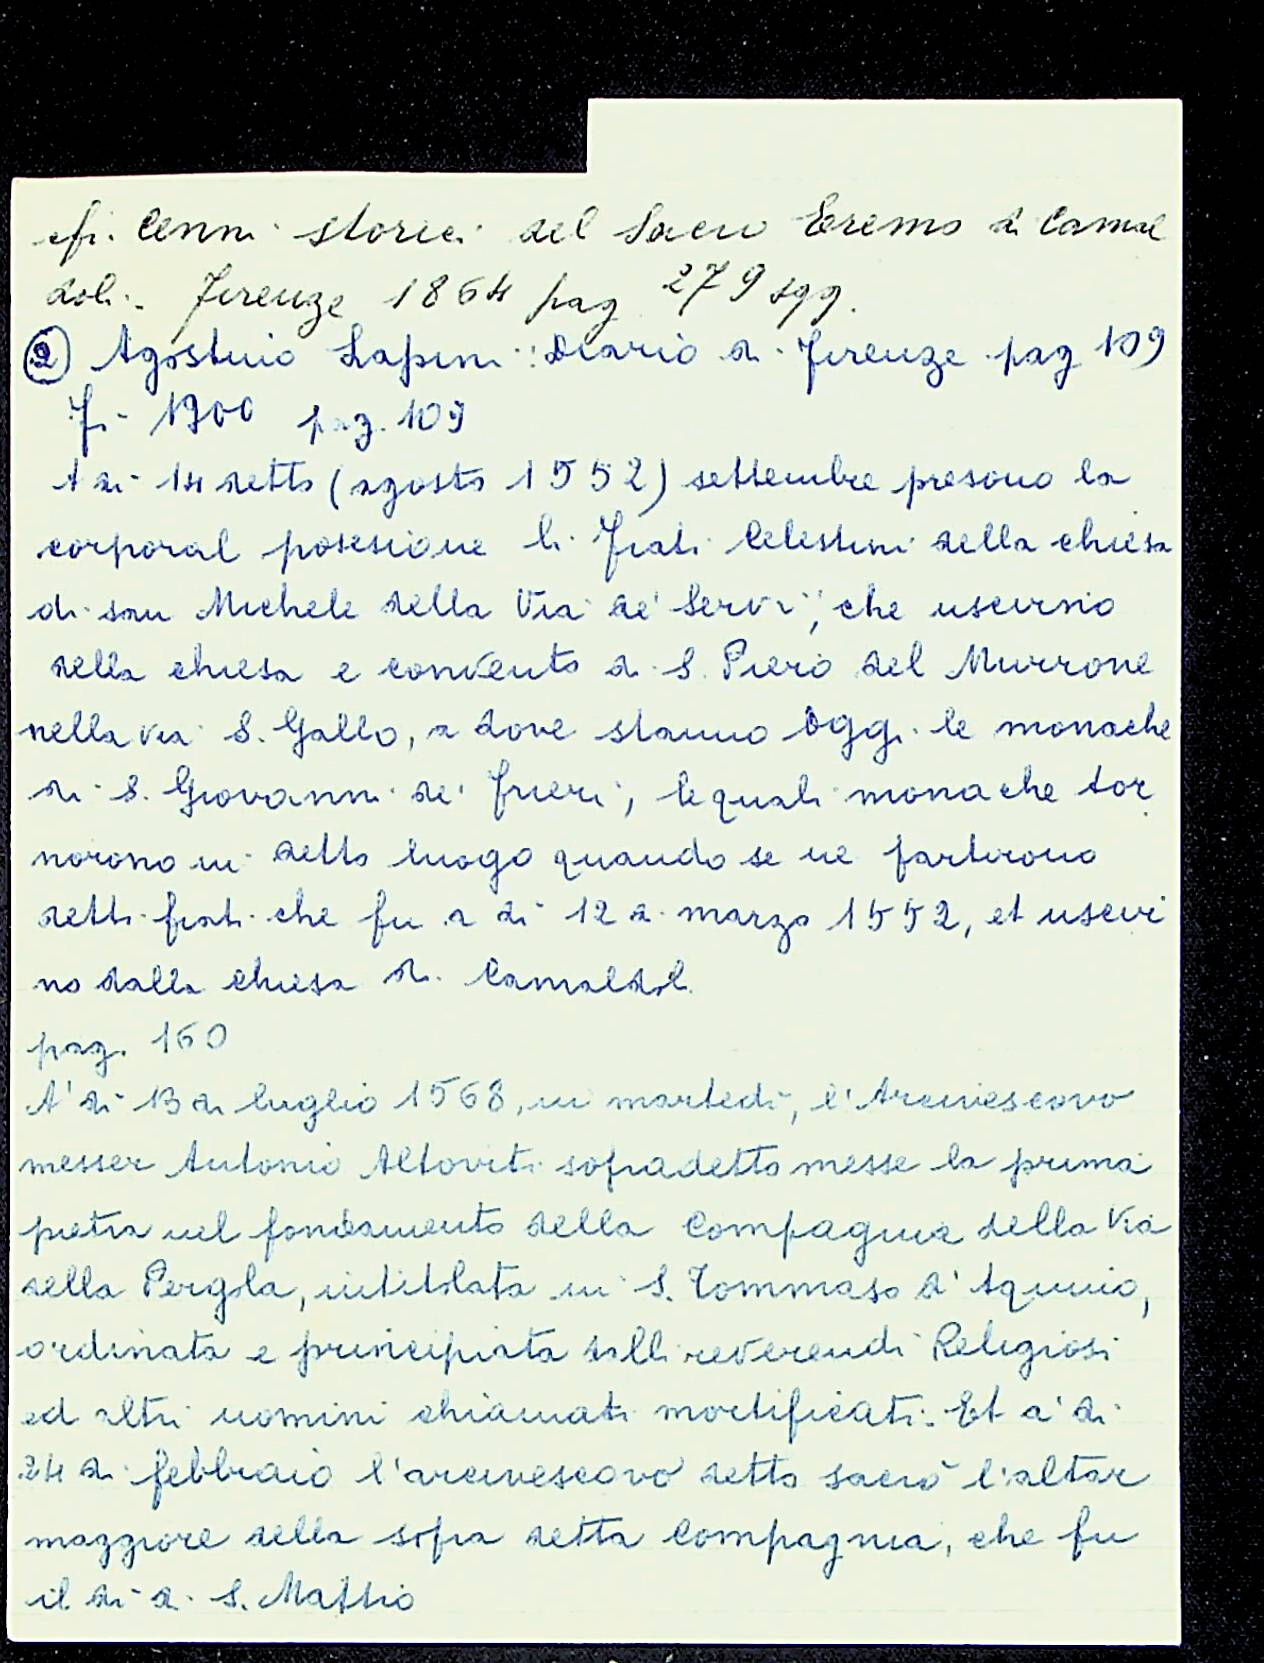 cfr. Cenni storici del Sacro Eremo di Camal
doli. Firenze 1864 pag 279 sgg.
② Agostino Lapini: Diario di Firenze pag 109
Fi 1900 pag. 109
A di 14 detto (agosto 1552) settembre presono la
corporal posesione li Frati Celestini della chiesa
di san Michele della Via de' Servi, che uscirno
della chiesa e convento di S. Piero del Murrone
nella via S. Gallo, a dove stanno oggi le monache
di S. Giovanni de' frieri, le quali monache tor
norono in detto luogo quando se ne partirono
detti frati che fu a di 12 di marzo 1552, et usciri
no dalla chiesa di Camaldoli.
pag. 160
A' di 13 di luglio 1568, in martedì, l'Arcivescovo
messer Antonio Altoviti sopradetto messe la prima
pietra nel fondamento della Compagnia della Via
della Pergola, intitolata in S. Tommaso d'Aquino,
ordinata e principiata dalli reverendi Religiosi
ed altri uomini chiamati mortificati. Et a' di
24 di febbraio l'arcivescovo detto sacrò l'altar
maggiore della sopra detta Compagnia, che fu
il di di S. Mattio